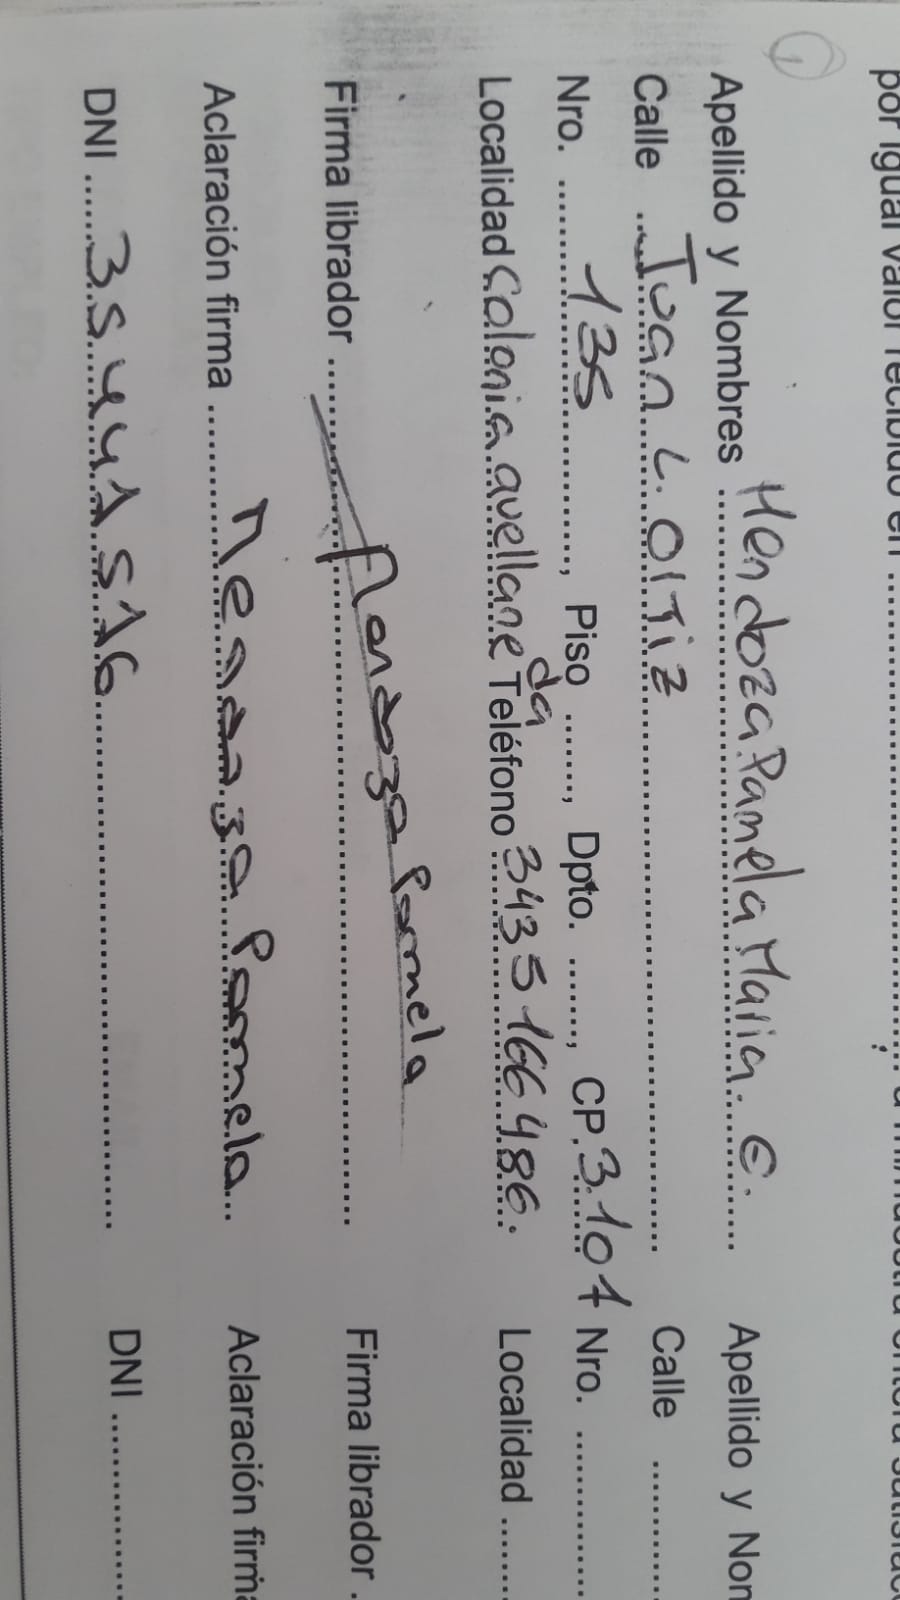 por igual valor recibido en
1
Apellido y Nombres Mendoza Pamela Maria. E.
Calle Juan L. Ortiz
Nro. 135, Piso ......, Dpto. ......, CP. 3.101
Localidad Colonia avellaneda Teléfono 3435166486.
Firma librador Mendoza Pamela
Aclaración firma Mendoza Pamela
DNI 35441516
Apellido y Nom
Calle
Nro.
Localidad
Firma librador
Aclaración firma
DNI